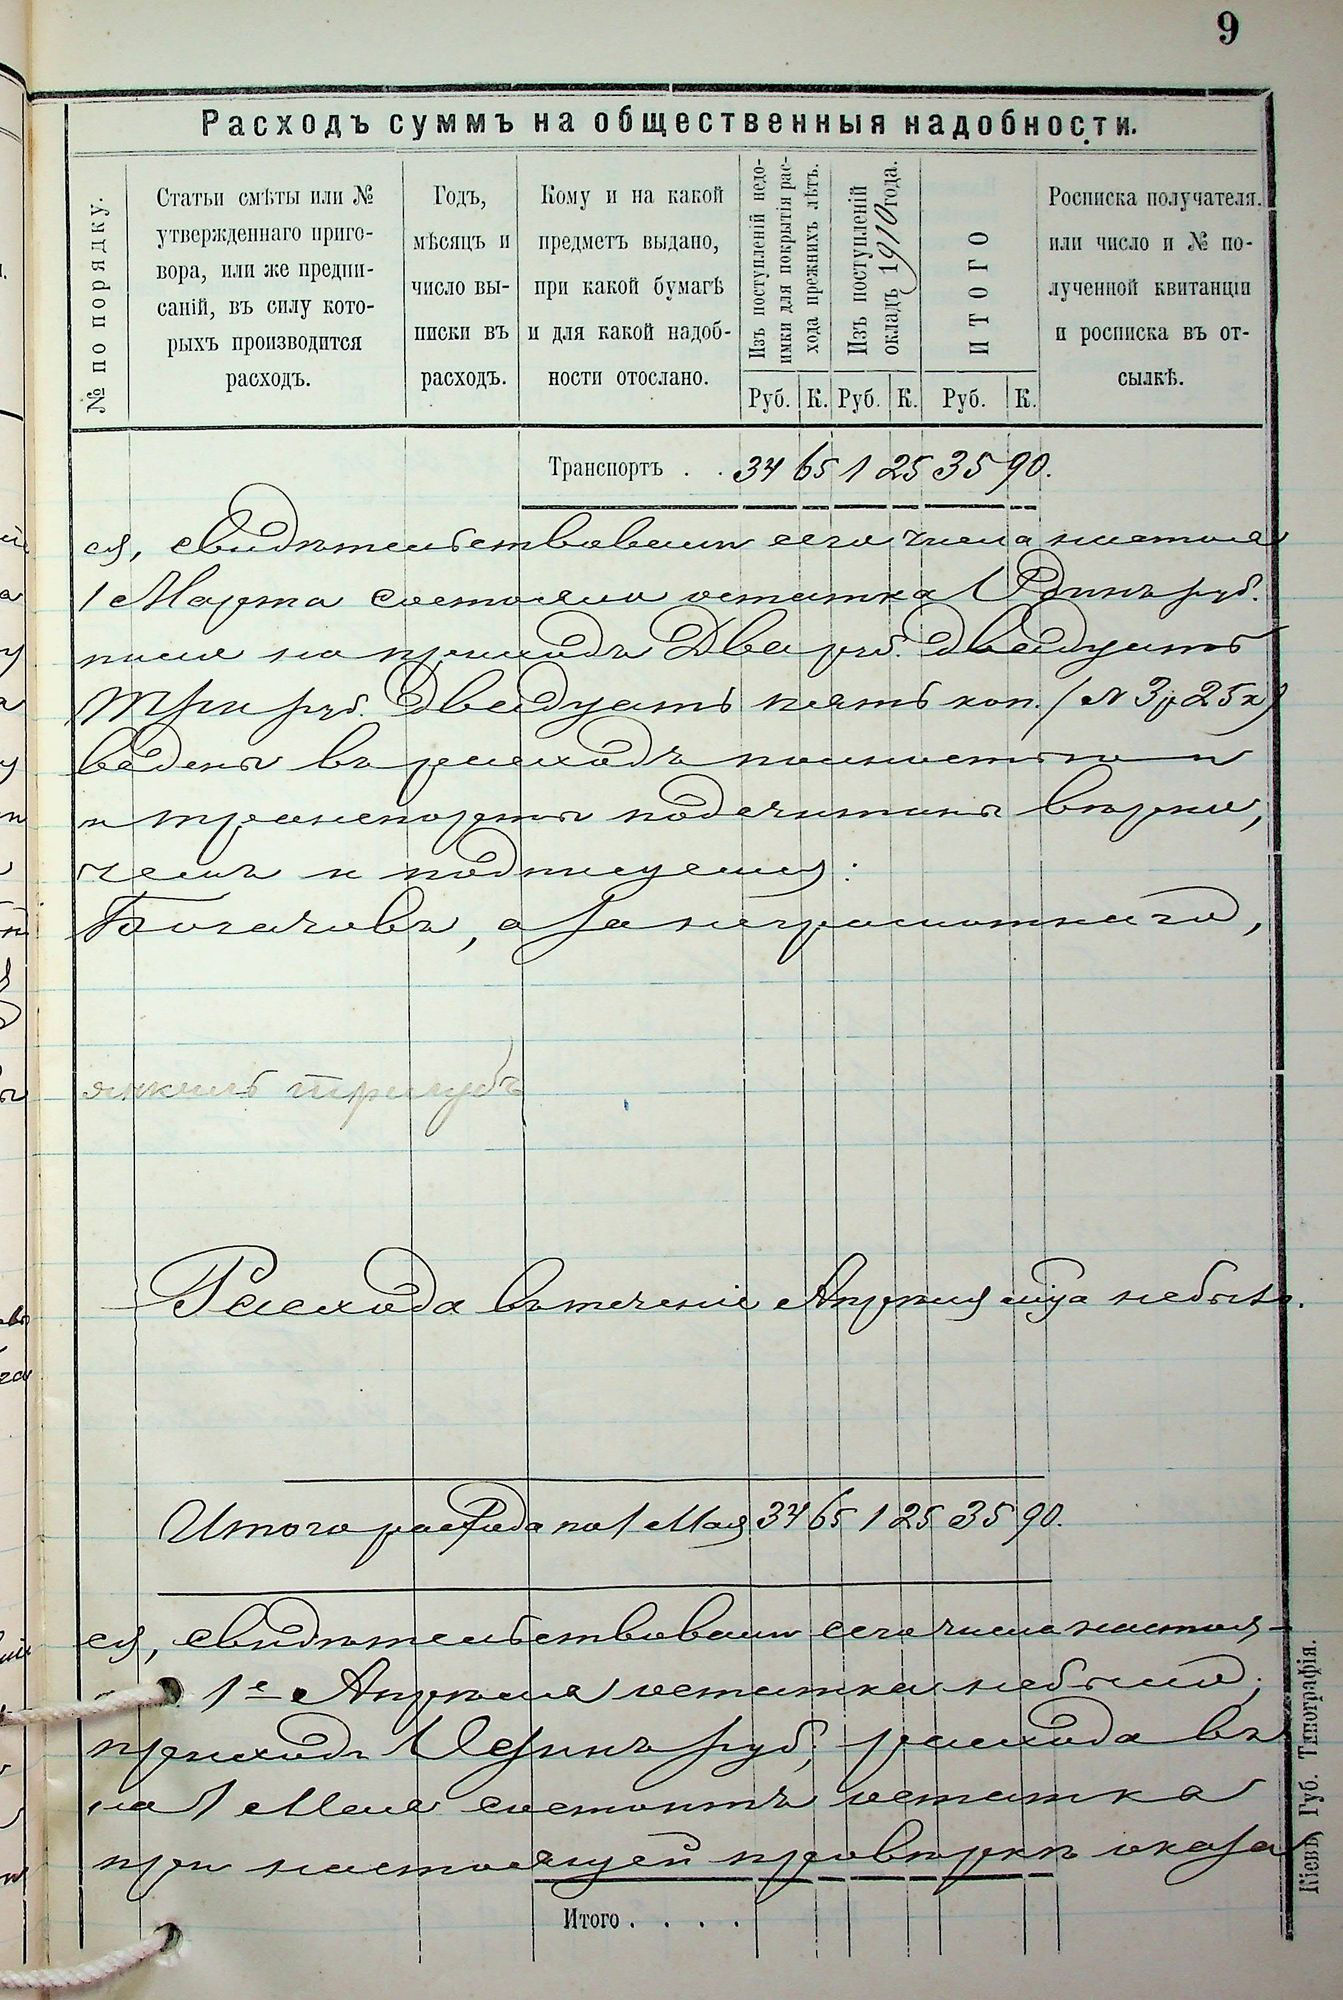 9
Расходъ суммъ на общественныя надобности.
№ по порядку.
Статьи смѣты или №
утвержденнаго приго-
вора, или же предпи-
саній, въ силу кото-
рыхъ производится
расходъ.
Годъ,
мѣсяцъ и
число вы-
писки въ
расходъ.
Кому и на какой
предметъ выдано,
при какой бумагѣ
и для какой надоб-
ности отослано.
Изъ поступленій недо-
имки для покрытія рас-
хода прежнихъ лѣтъ.
Изъ поступленій
окладъ 1910 года.
ИТОГО
Росписка получателя,
или число и № по-
лученной квитанціи
и росписка въ от-
сылкѣ.
Руб. К. Руб. К. Руб. К.
Транспортъ . . 34 65 1 25 35 90.
ся, свидѣтельствовали сего числа настоя
1 Марта состояло остатка 1 Одинъ руб.
на приходъ Два руб. двадцать
Три руб. двадцать пять коп. (3 р 25 к)
ведены въ расходъ полностью и
и транспорты подсчитаны вѣрно,
чемъ и подпишемся:
Богачовъ, а за неграмотнаго,
Расхода въ теченіе Апрѣля м-ца небыло.
Итого расхода по 1 Мая 34 65 1 25 35 90.
ся, свидѣтельствовали сего числа настоя-
1е Апрѣля остатка небыло,
приходъ Одинъ руб, расхода въ
на 1 Мая состоитъ остатка
при настоящей провѣркѣ оказа
Итого . . . .
Кіевъ, Губ. Типографія.